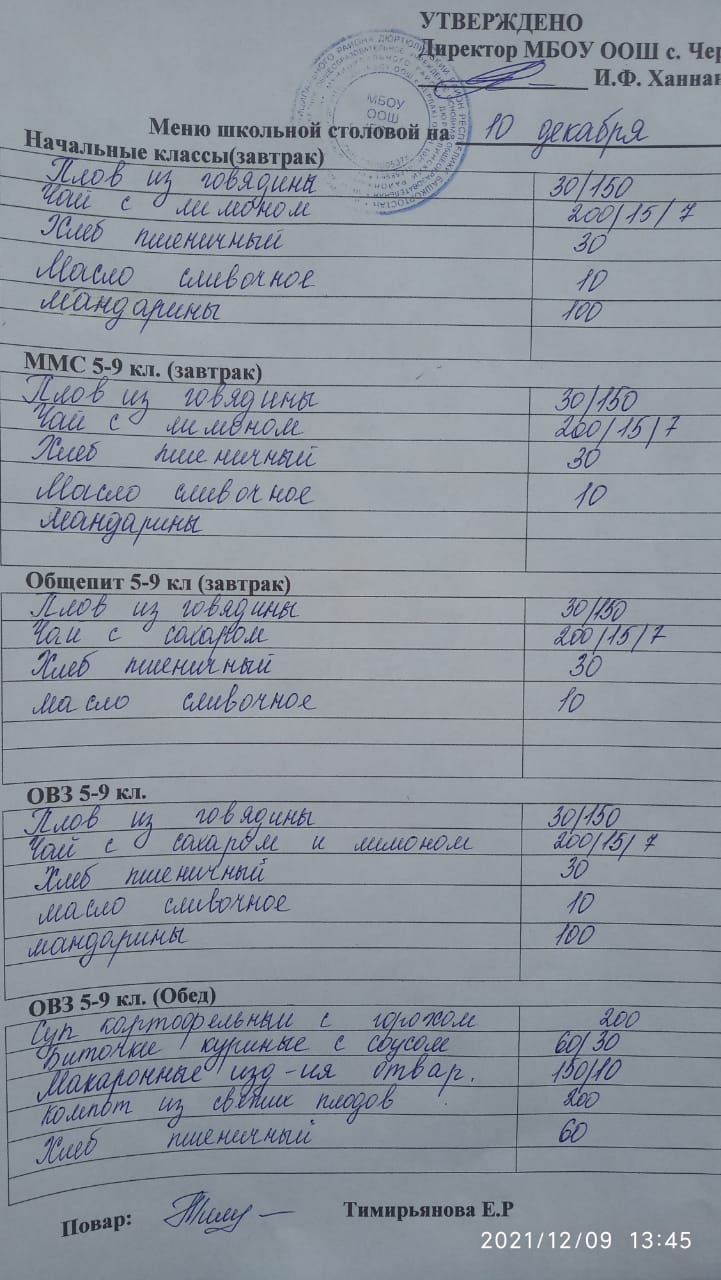 УТВЕРЖДЕНО
Директор МБОУ ООШ с. Чер
И.Ф. Ханнан
МБОУ
ООШ
Меню школьной столовой на 10 декабря
Начальные классы(завтрак)
Плов из говядины 30/150
Чай с лимоном 200/15/7
Хлеб пшеничный 30
Масло сливочное 10
Мандарины 100
ММС 5-9 кл. (завтрак)
Плов из говядины 30/150
Чай с лимоном 200/15/7
Хлеб пшеничный 30
Масло сливочное 10
Мандарины
Общепит 5-9 кл (завтрак)
Плов из говядины 30/150
Чай с сахаром 200/15/7
Хлеб пшеничный 30
масло сливочное 10
ОВЗ 5-9 кл.
Плов из говядины 30/150
Чай с сахаром и лимоном 200/15/7
Хлеб пшеничный 30
масло сливочное 10
мандарины 100
ОВЗ 5-9 кл. (Обед)
Суп картофельный с горохом 200
Биточки куриные с соусом 60/30
Макаронные изд-ия отвар. 150/10
компот из свежих плодов 200
Хлеб пшеничный 60
Повар: Тимирьянова Е.Р
2021/12/09 13:45